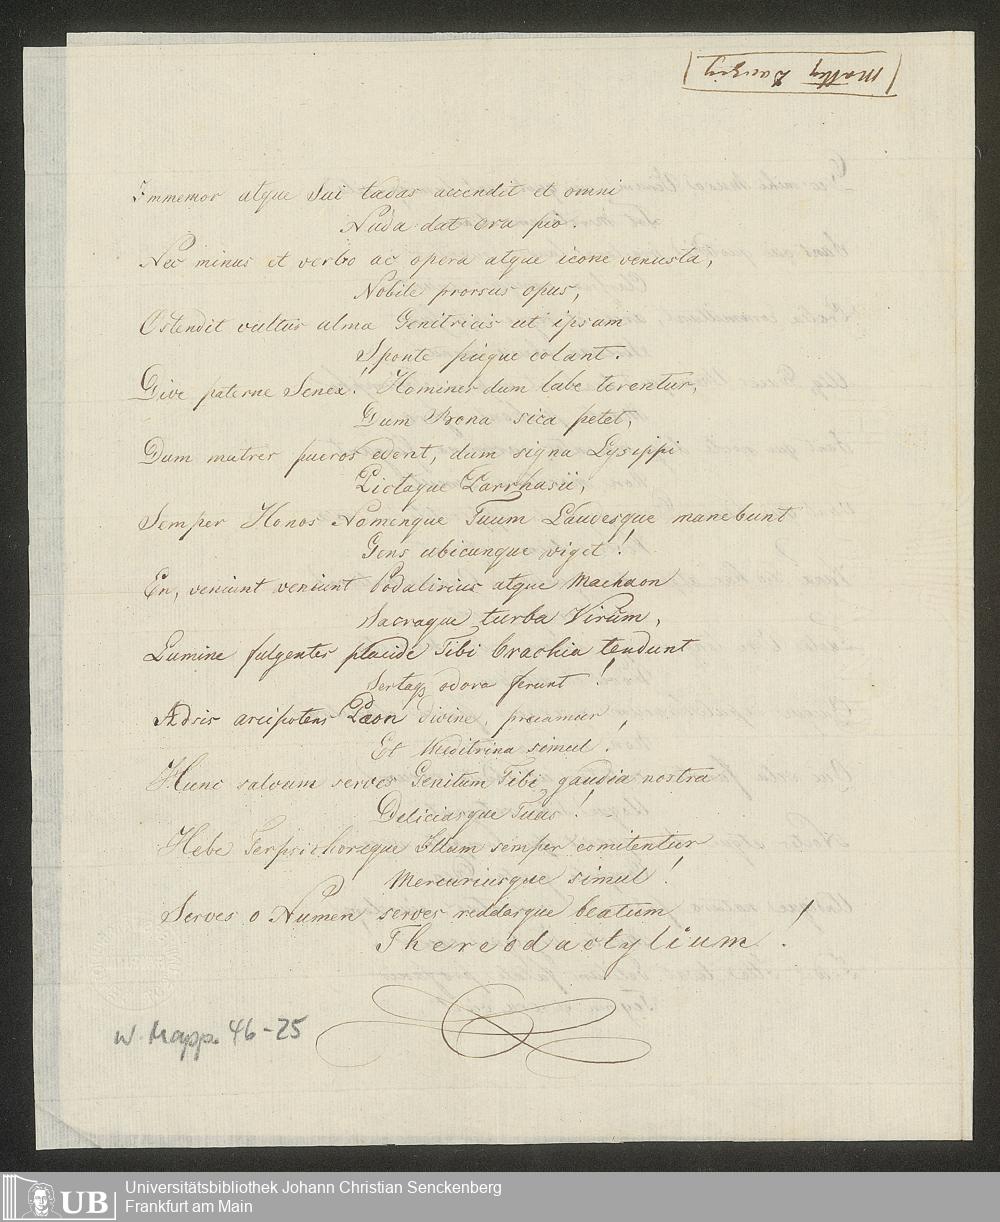 (Matthy Danzig)
Immemor atque Sui tædas accendit et omni
Nuda dat ora pio.
Nec minus et verbo ac opera atque icone venusta,
Nobile prorsus opus,
Ostendit vultus alma Genitricis ut ipsam
Sponte pieque colant.
Dive paterne Senex! Homines dum labe terentur,
Dum Bona sica petet,
Dum matres pueros edent, dum signa Lysippi
Pictaque Parrhasii,
Semper Honos Nomenque Tuum Laudesque manebunt
Gens ubicunque viget!
En, veniunt veniunt Podalirius atque Machaon
Sacraque turba Virûm,
Lumine fulgentes placide Tibi brachia tendunt
Sertaq odora ferunt!
Adsis arcipotens Pæon divine, precamur,
Et Meditrina simul!
Hunc salvum serves Genitum Tibi, gaudia nostra
Deliciasque Tuas!
Hebe Terpsichoreque Illum semper comitentur
Mercuriusque simul!
Serves o Numen serves reddasque beatum
Thereodactylium!
W. Mapp. 46-25
UB Universitätsbibliothek Johann Christian Senckenberg
Frankfurt am Main